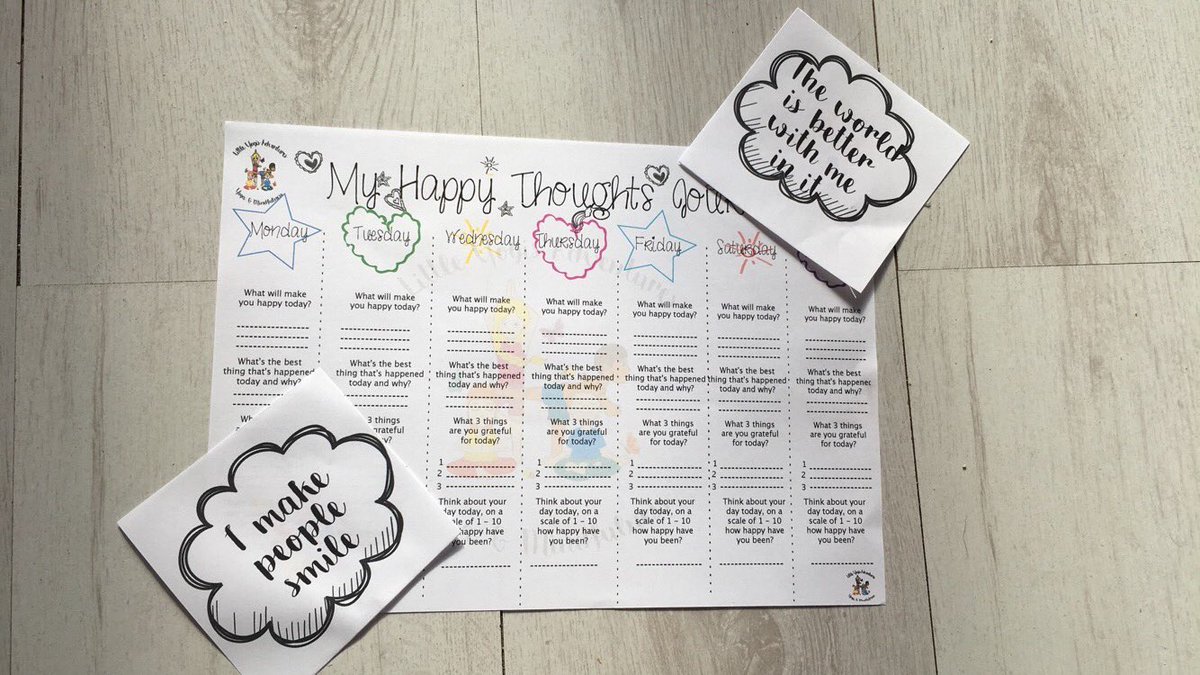 Little Yoga Adventures
Yoga & Mindfulness
My Happy Thoughts Jour
The world
is better
with me
in it
Monday
Tuesday
Wednesday
Thursday
Friday
Saturday
What will make
you happy today?
What will make
you happy today?
What will make
you happy today?
What will make
you happy today?
What will make
you happy today?
What will make
you happy today?
What will make
you happy today?
What's the best
thing that's happened
today and why?
What's the best
thing that's happened
today and why?
What's the best
thing that's happened
today and why?
What's the best
thing that's happened
today and why?
What's the best
thing that's happened
today and why?
What's the best
thing that's happened
today and why?
What's the best
thing that's happened
today and why?
What
3 things
grateful
today?
What 3 things
are you grateful
for today?
What 3 things
are you grateful
for today?
What 3 things
are you grateful
for today?
What 3 things
are you grateful
for today?
What 3 things
are you grateful
for today?
1
2
3
1
2
3
1
2
3
1
2
3
1
2
3
Think about your
day today, on a
scale of 1 - 10
how happy have
you been?
Think about your
day today, on a
scale of 1 - 10
how happy have
you been?
Think about your
day today, on a
scale of 1 - 10
how happy have
you been?
Think about your
day today, on a
scale of 1 - 10
how happy have
you been?
Think about your
day today, on a
scale of 1 - 10
how happy have
you been?
I make
people
smile